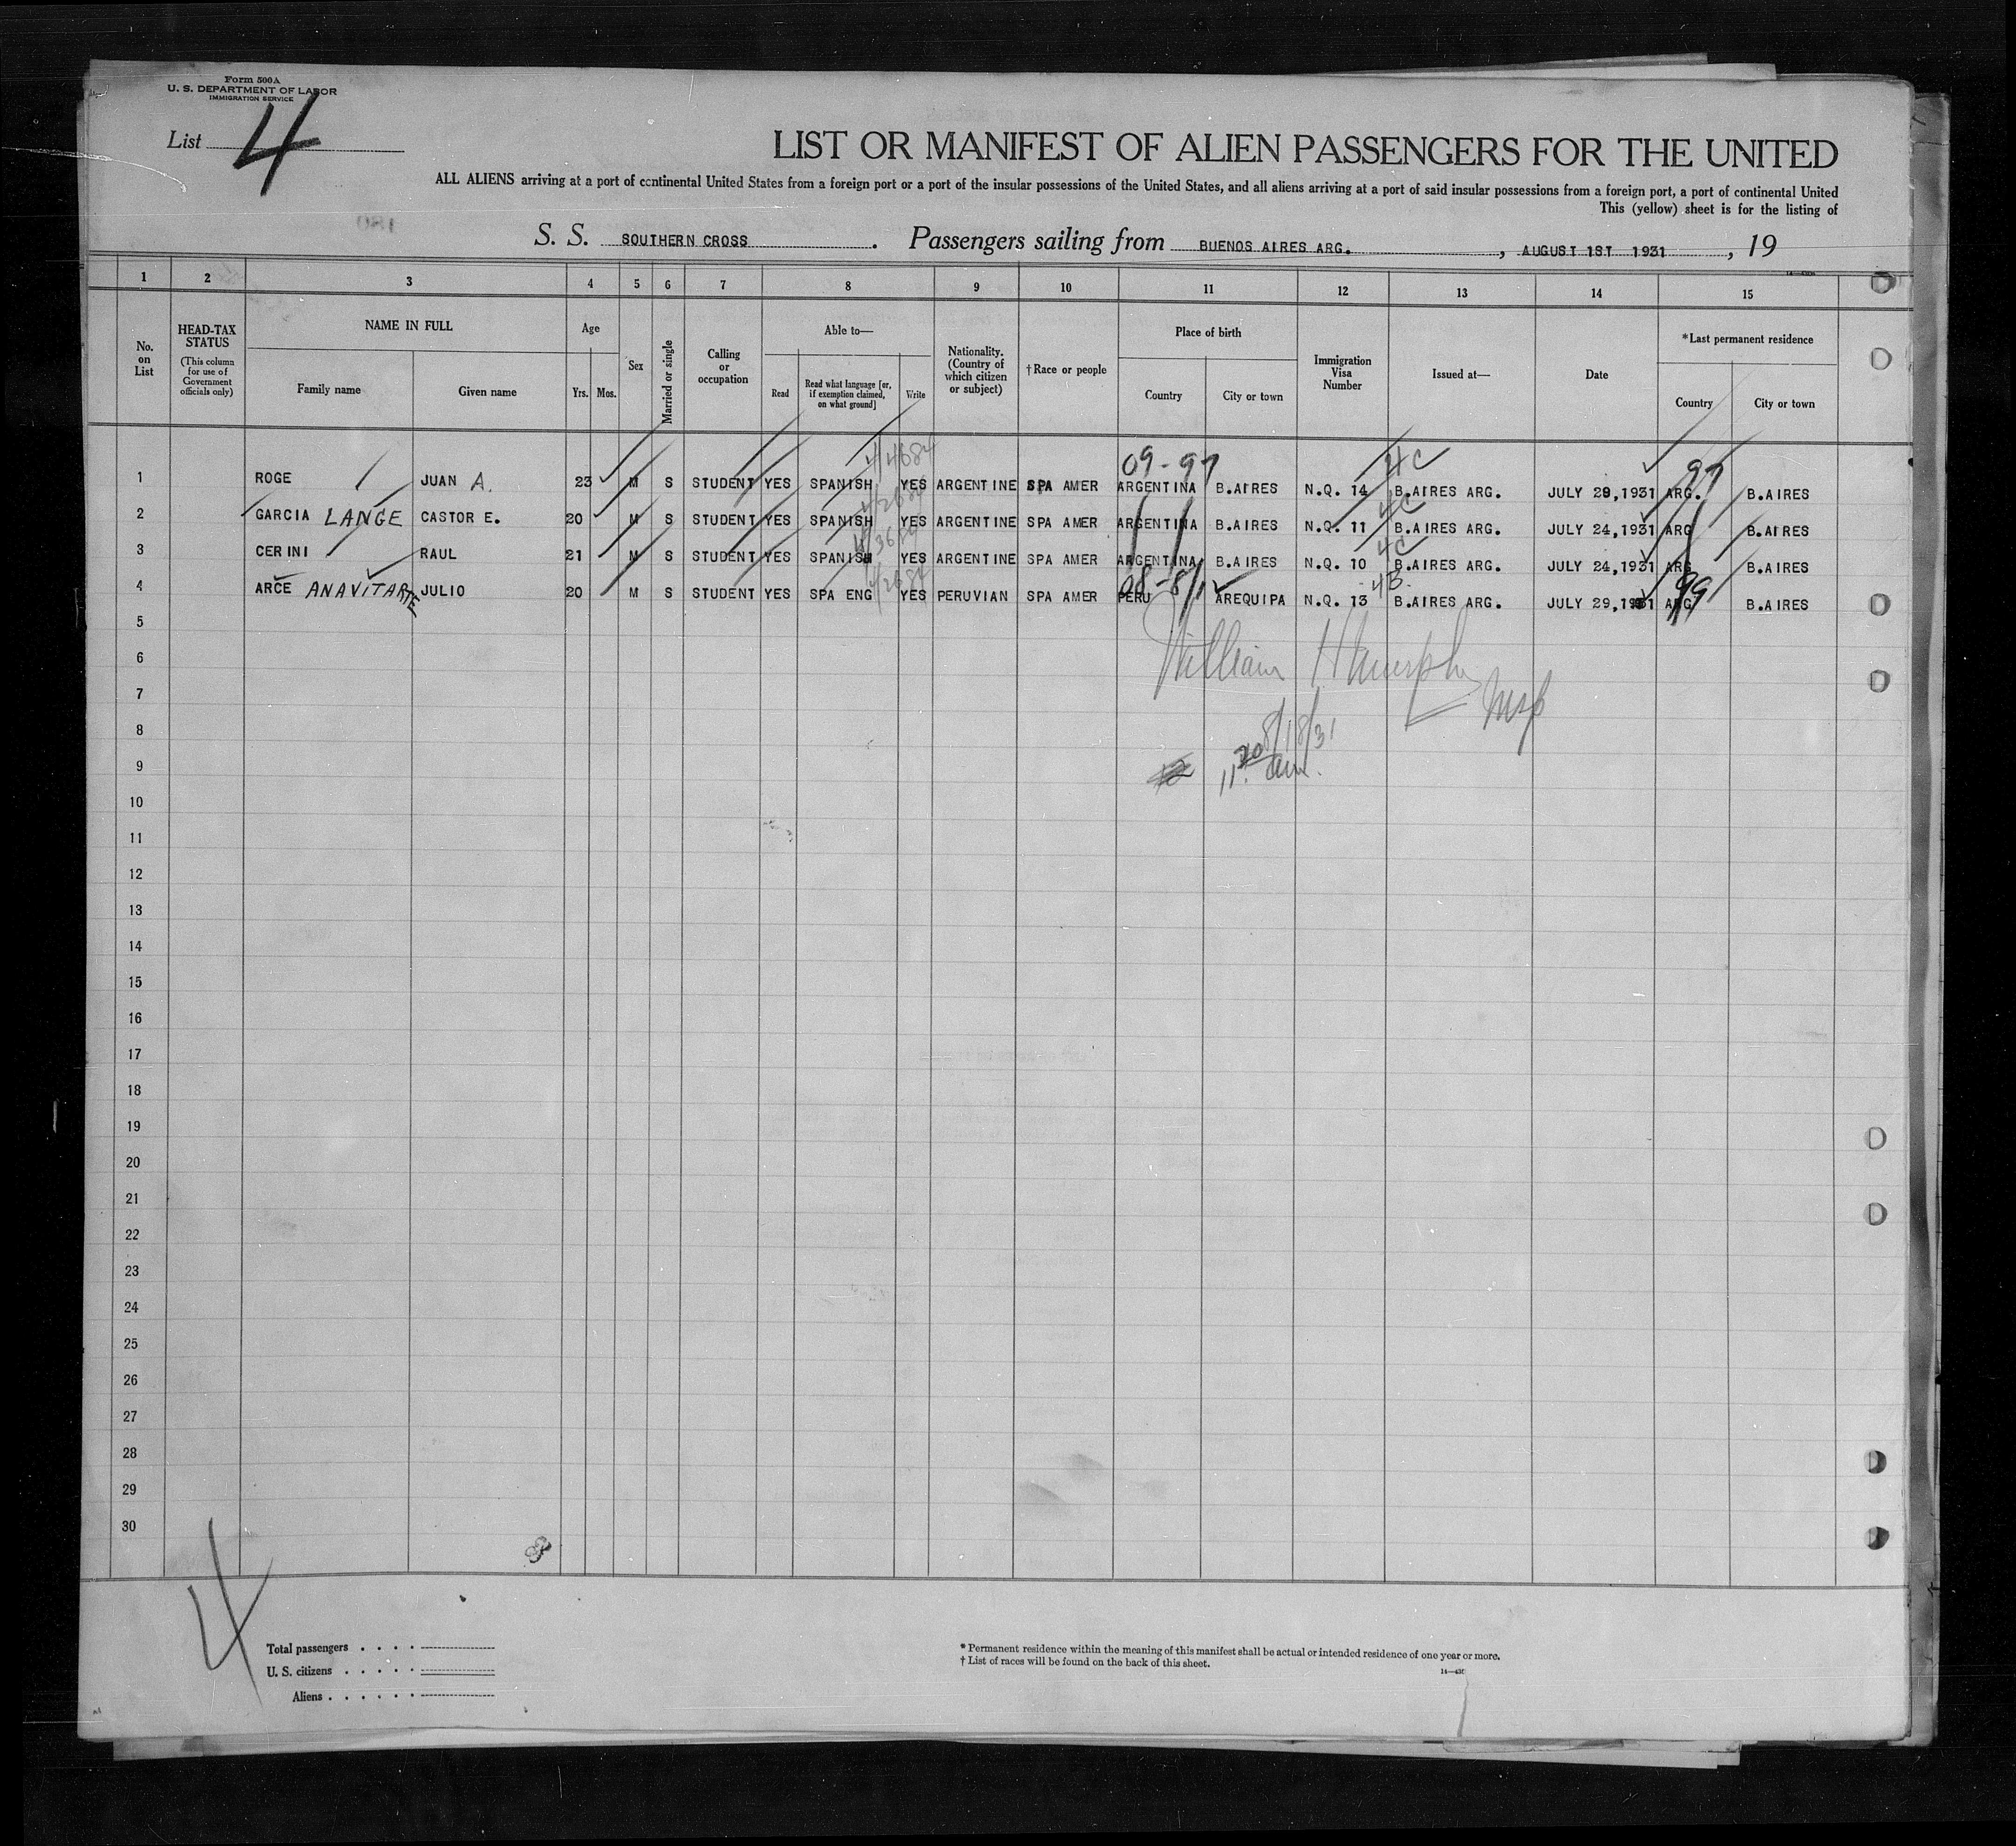 Form 500A
U. S. DEPARTMENT OF LABOR
IMMIGRATION SERVICE
List 4
LIST OR MANIFEST OF ALIEN PASSENGERS FOR THE UNITED
ALL ALIENS arriving at a port of continental United States from a foreign port or a port of the insular possessions of the United States, and all aliens arriving at a port of said insular possessions from a foreign port, a port of continental United
This (yellow) sheet is for the listing of
S. S. SOUTHERN CROSS. Passengers sailing from BUENOS AIRES ARG., AUGUST 1ST 1931, 19
1 2 3 4 5 6 7 8 9 10 11 12 13 14 15
No. on List
HEAD-TAX STATUS
(This column for use of Government officials only)
NAME IN FULL
Family name
Given name
Age
Yrs. Mos.
Sex
Married or single
Calling or occupation
Able to—
Read
Read what language [or, if exemption claimed, on what ground]
Write
Nationality. (Country of which citizen or subject)
†Race or people
Place of birth
Country
City or town
Immigration Visa Number
Issued at—
Date
*Last permanent residence
Country
City or town
4/4684
09-97 4C 99
1 ROGE JUAN A. 23 M S STUDENT YES SPANISH YES ARGENTINE SPA AMER ARGENTINA B.AIRES N.Q. 14 B.AIRES ARG. JULY 29,1931 ARG. B.AIRES
4C
2 GARCIA LANGE CASTOR E. 20 M S STUDENT YES SPANISH YES ARGENTINE SPA AMER ARGENTINA B.AIRES N.Q. 11 B.AIRES ARG. JULY 24,1931 ARG B.AIRES
4C
3 CERINI RAUL 21 M S STUDENT YES SPANISH YES ARGENTINE SPA AMER ARGENTINA B.AIRES N.Q. 10 B.AIRES ARG. JULY 24,1931 ARG B.AIRES
4B 99
4 ARCE ANAVITARTE JULIO 20 M S STUDENT YES SPA ENG YES PERUVIAN SPA AMER PERU AREQUIPA N.Q. 13 B.AIRES ARG. JULY 29,1931 ARG B.AIRES
5
6 William H Murphy
7
8 8/18/31
9 11.20 am.
10
11
12
13
14
15
16
17
18
19
20
21
22
23
24
25
26
27
28
29
30
4
Total passengers
U. S. citizens
Aliens
*Permanent residence within the meaning of this manifest shall be actual or intended residence of one year or more.
†List of races will be found on the back of this sheet.